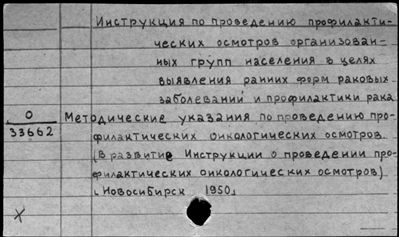 Инструкция по проведению профилакти-
ческих осмотров организован-
ных групп населения в целях
выявления ранних форм раковых
заболеваний и профилактики рака
О
33662
Методические указания по проведению про-
филактических онкологических осмотров.
(В развитие Инструкции о проведении про-
филактических онкологических осмотров)
г. Новосибирск 1950г
X